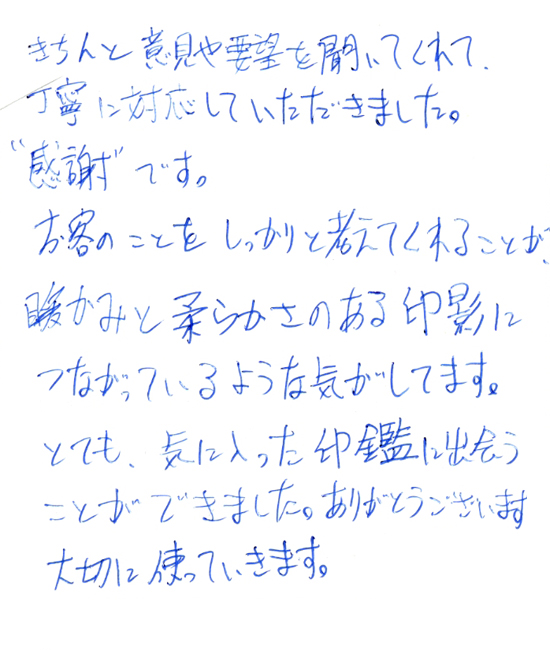 きちんと意見や要望を聞いてくれて、
丁寧に対応していただきました。
"感謝"です。
お客のことをしっかりと考えてくれることが、
暖かみと柔らかさのある印影に
つながっているような気がしてます。
とても、気に入った印鑑に出会う
ことができました。ありがとうございます
大切に使っていきます。